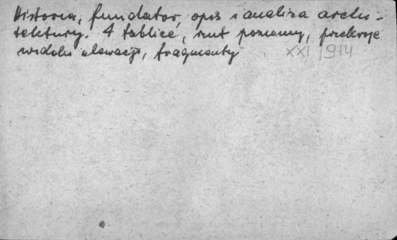 Historia, fundator, opis i analiza archi-
tektury. 4 tablice, rzut poziomy, przekroje
widoki elewacji, fragmenty
XXI/914